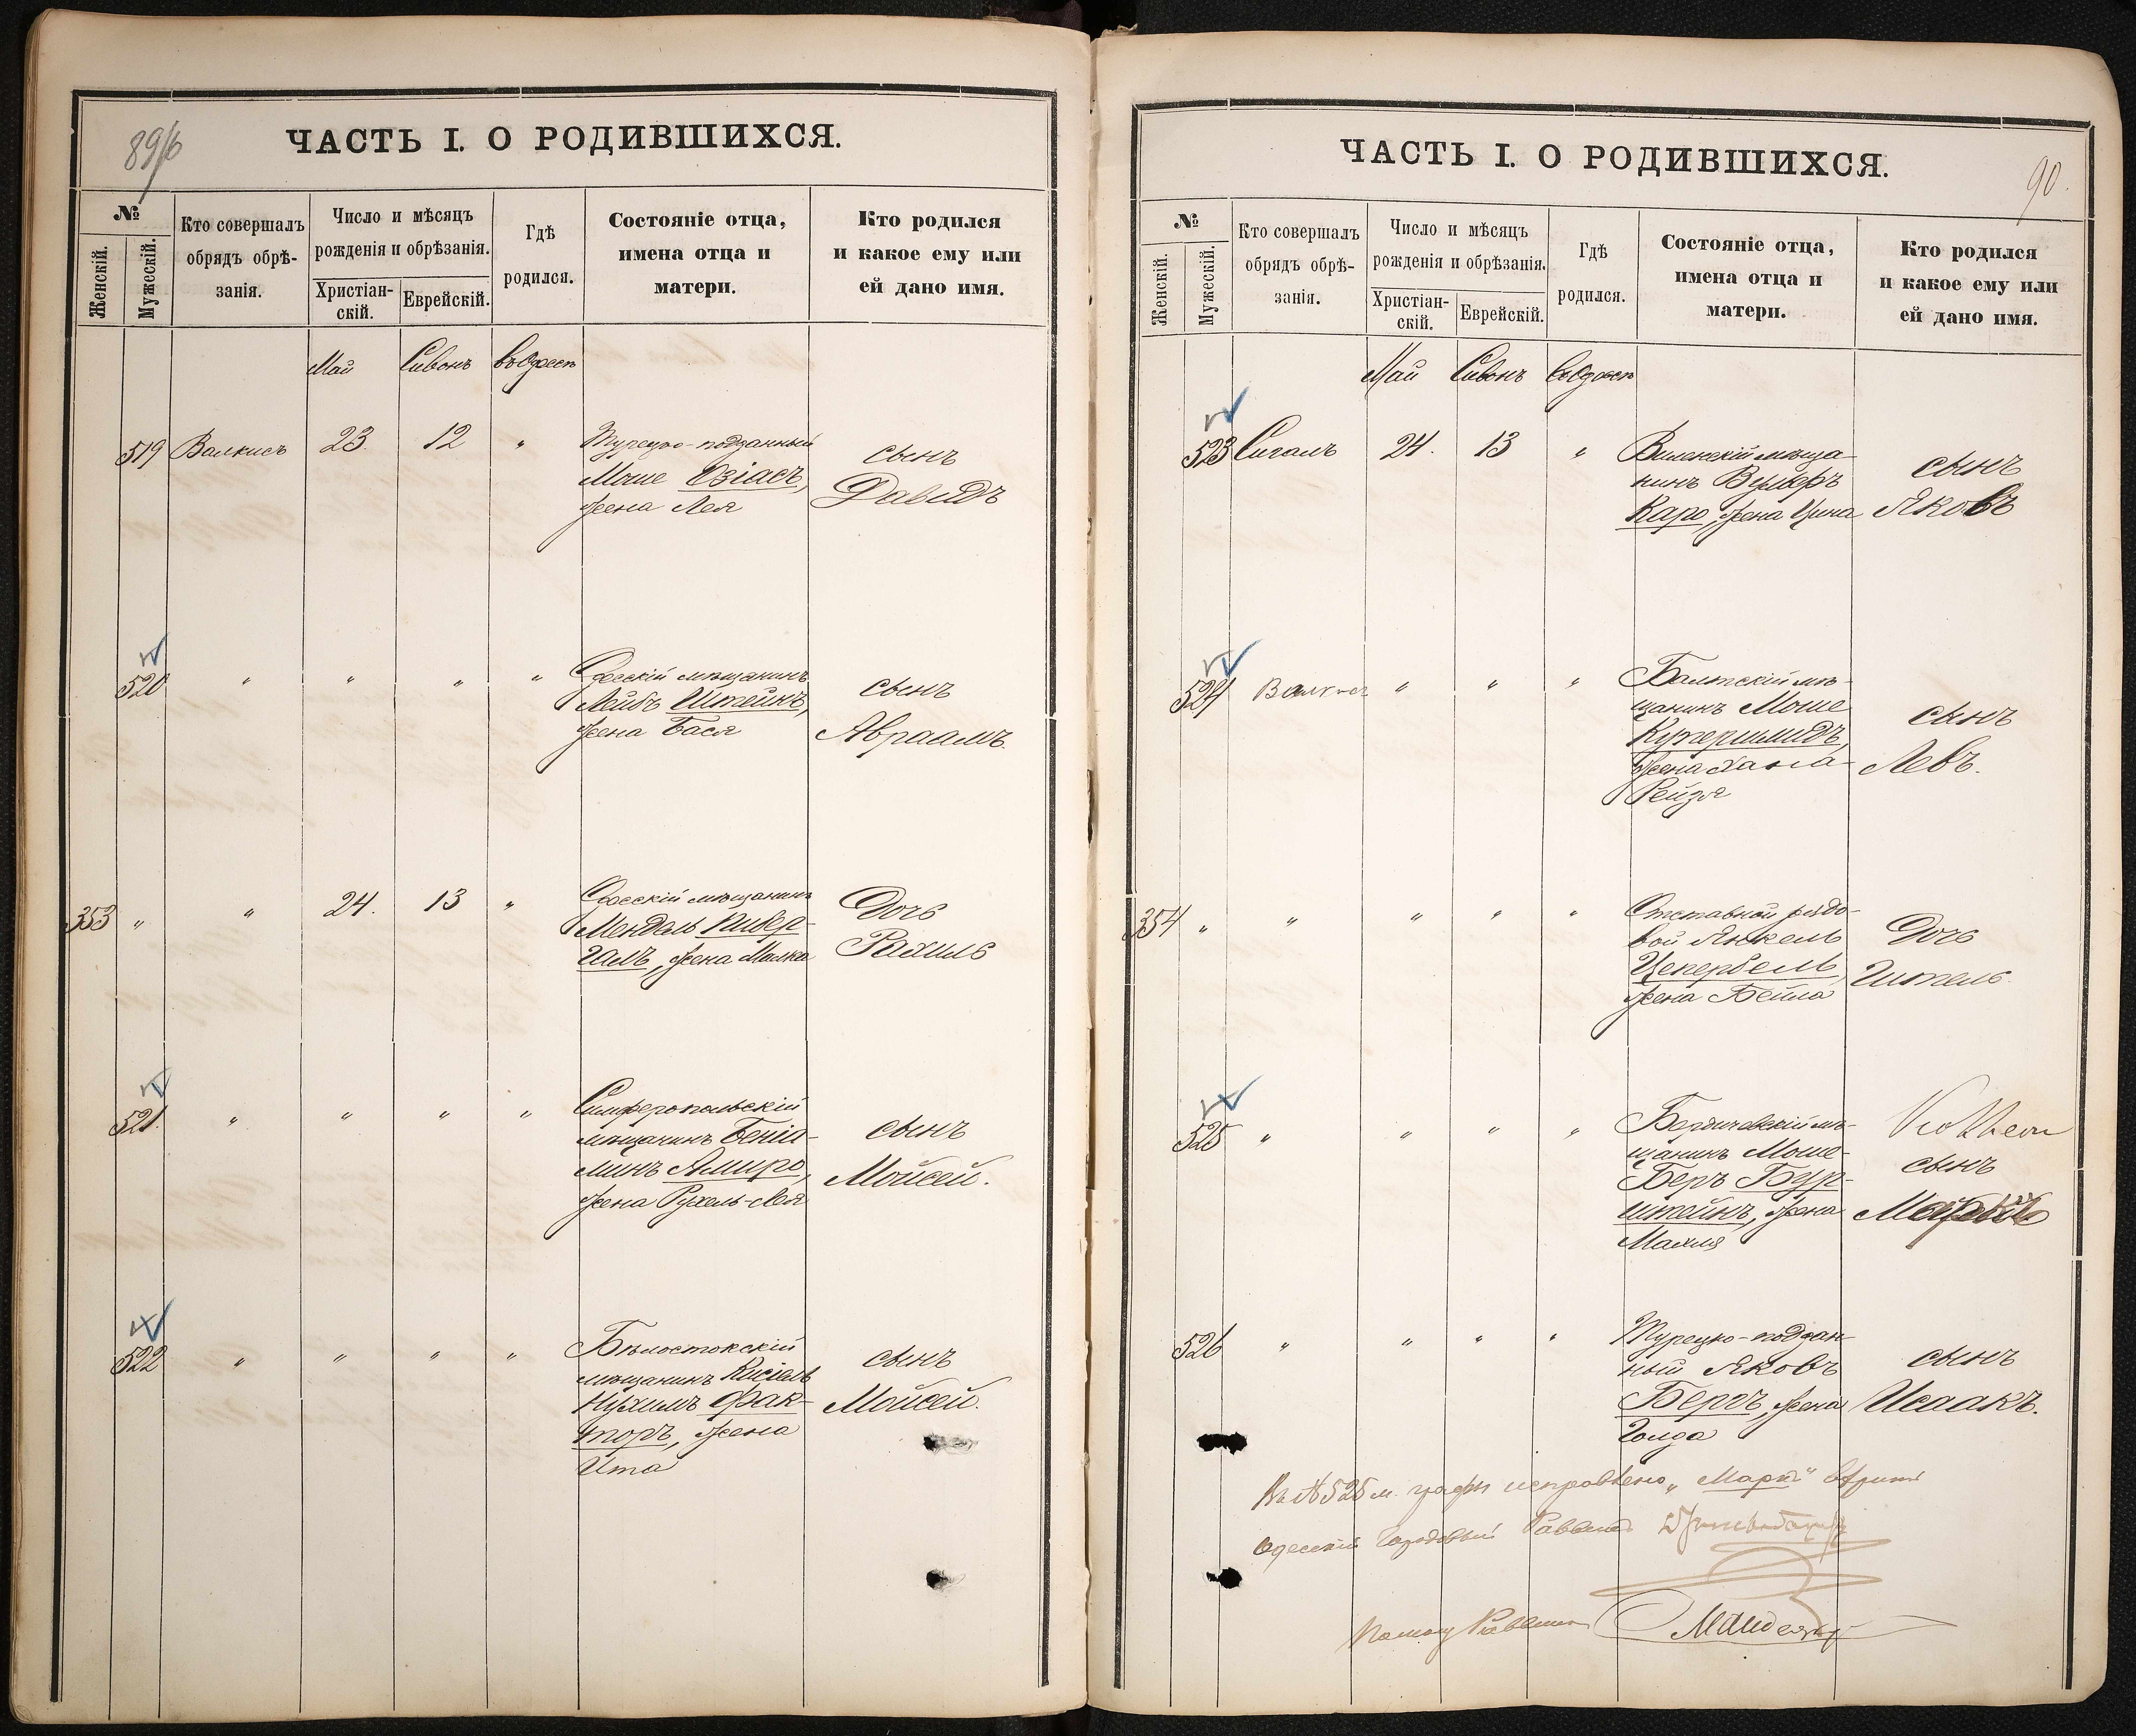 89/6
ЧАСТЬ I. О РОДИВШИХСЯ.
№
Женскій.
Мужескій.
Кто совершалъ
обрядъ обрѣ-
занія.
Число и мѣсяцъ
рожденія и обрѣзанія.
Христіан-
скій.
Еврейскій.
Гдѣ
родился.
Состояніе отца,
имена отца и
матери.
Кто родился
и какое ему или
ей дано имя.
Май Сивонъ въ Одессѣ
519 Валкисъ 23. 12 " Турецко-подданный
Моше Озіасъ,
жена Лея
сынъ
Давидъ
520 " " " " Одесскій мѣщанинъ
Лейбъ Штейнъ,
жена Бася
сынъ
Авраамъ.
353 " " 24. 13 " Одесскій мѣщанинъ
Мендель
жена Малка
Дочь
Рахиль
521. " " " " Симферопольскій
мѣщанинъ Беніа-
минъ Амиро,
жена Рухель-Лея
сынъ
Мойсей.
522 " " " " Бѣлостокскій
мѣщанинъ Кисіель
Нухимъ Фак-
торъ, жена
Ита
сынъ
Мойсей.
90.
ЧАСТЬ I. О РОДИВШИХСЯ.
№
Женскій.
Мужескій.
Кто совершалъ
обрядъ обрѣ-
занія.
Число и мѣсяцъ
рожденія и обрѣзанія.
Христіан-
скій.
Еврейскій.
Гдѣ
родился.
Состояніе отца,
имена отца и
матери.
Кто родился
и какое ему или
ей дано имя.
Май Сивонъ въ Одессѣ
523 Сигалъ 24. 13 " Виленскій мѣща-
нинъ Вульфъ
Каро, жена Цина
сынъ
Яковъ
524 Валкисъ " " " Балтскій мѣ-
щанинъ Моше
Купершмидъ,
жена Хана-
Рейзя
сынъ
Левъ.
354 " " " " " Отставной рядо-
вой Янкель
Цеперbель
жена Бейла
Дочь
Гитель.
525 " " " " Бердичевскій мѣ-
щанинъ Моше-
Беръ Бур-
штейнъ, жена
Махля
сынъ
526 " " " " Турецко-поддан-
ный Яковъ
Бергъ, жена
Голда
сынъ
Исаакъ.
Въ № 525 м. графы исправлено "Маркъ" вѣрить
Одесскій Городовой Раввинъ
Помощ Раввина